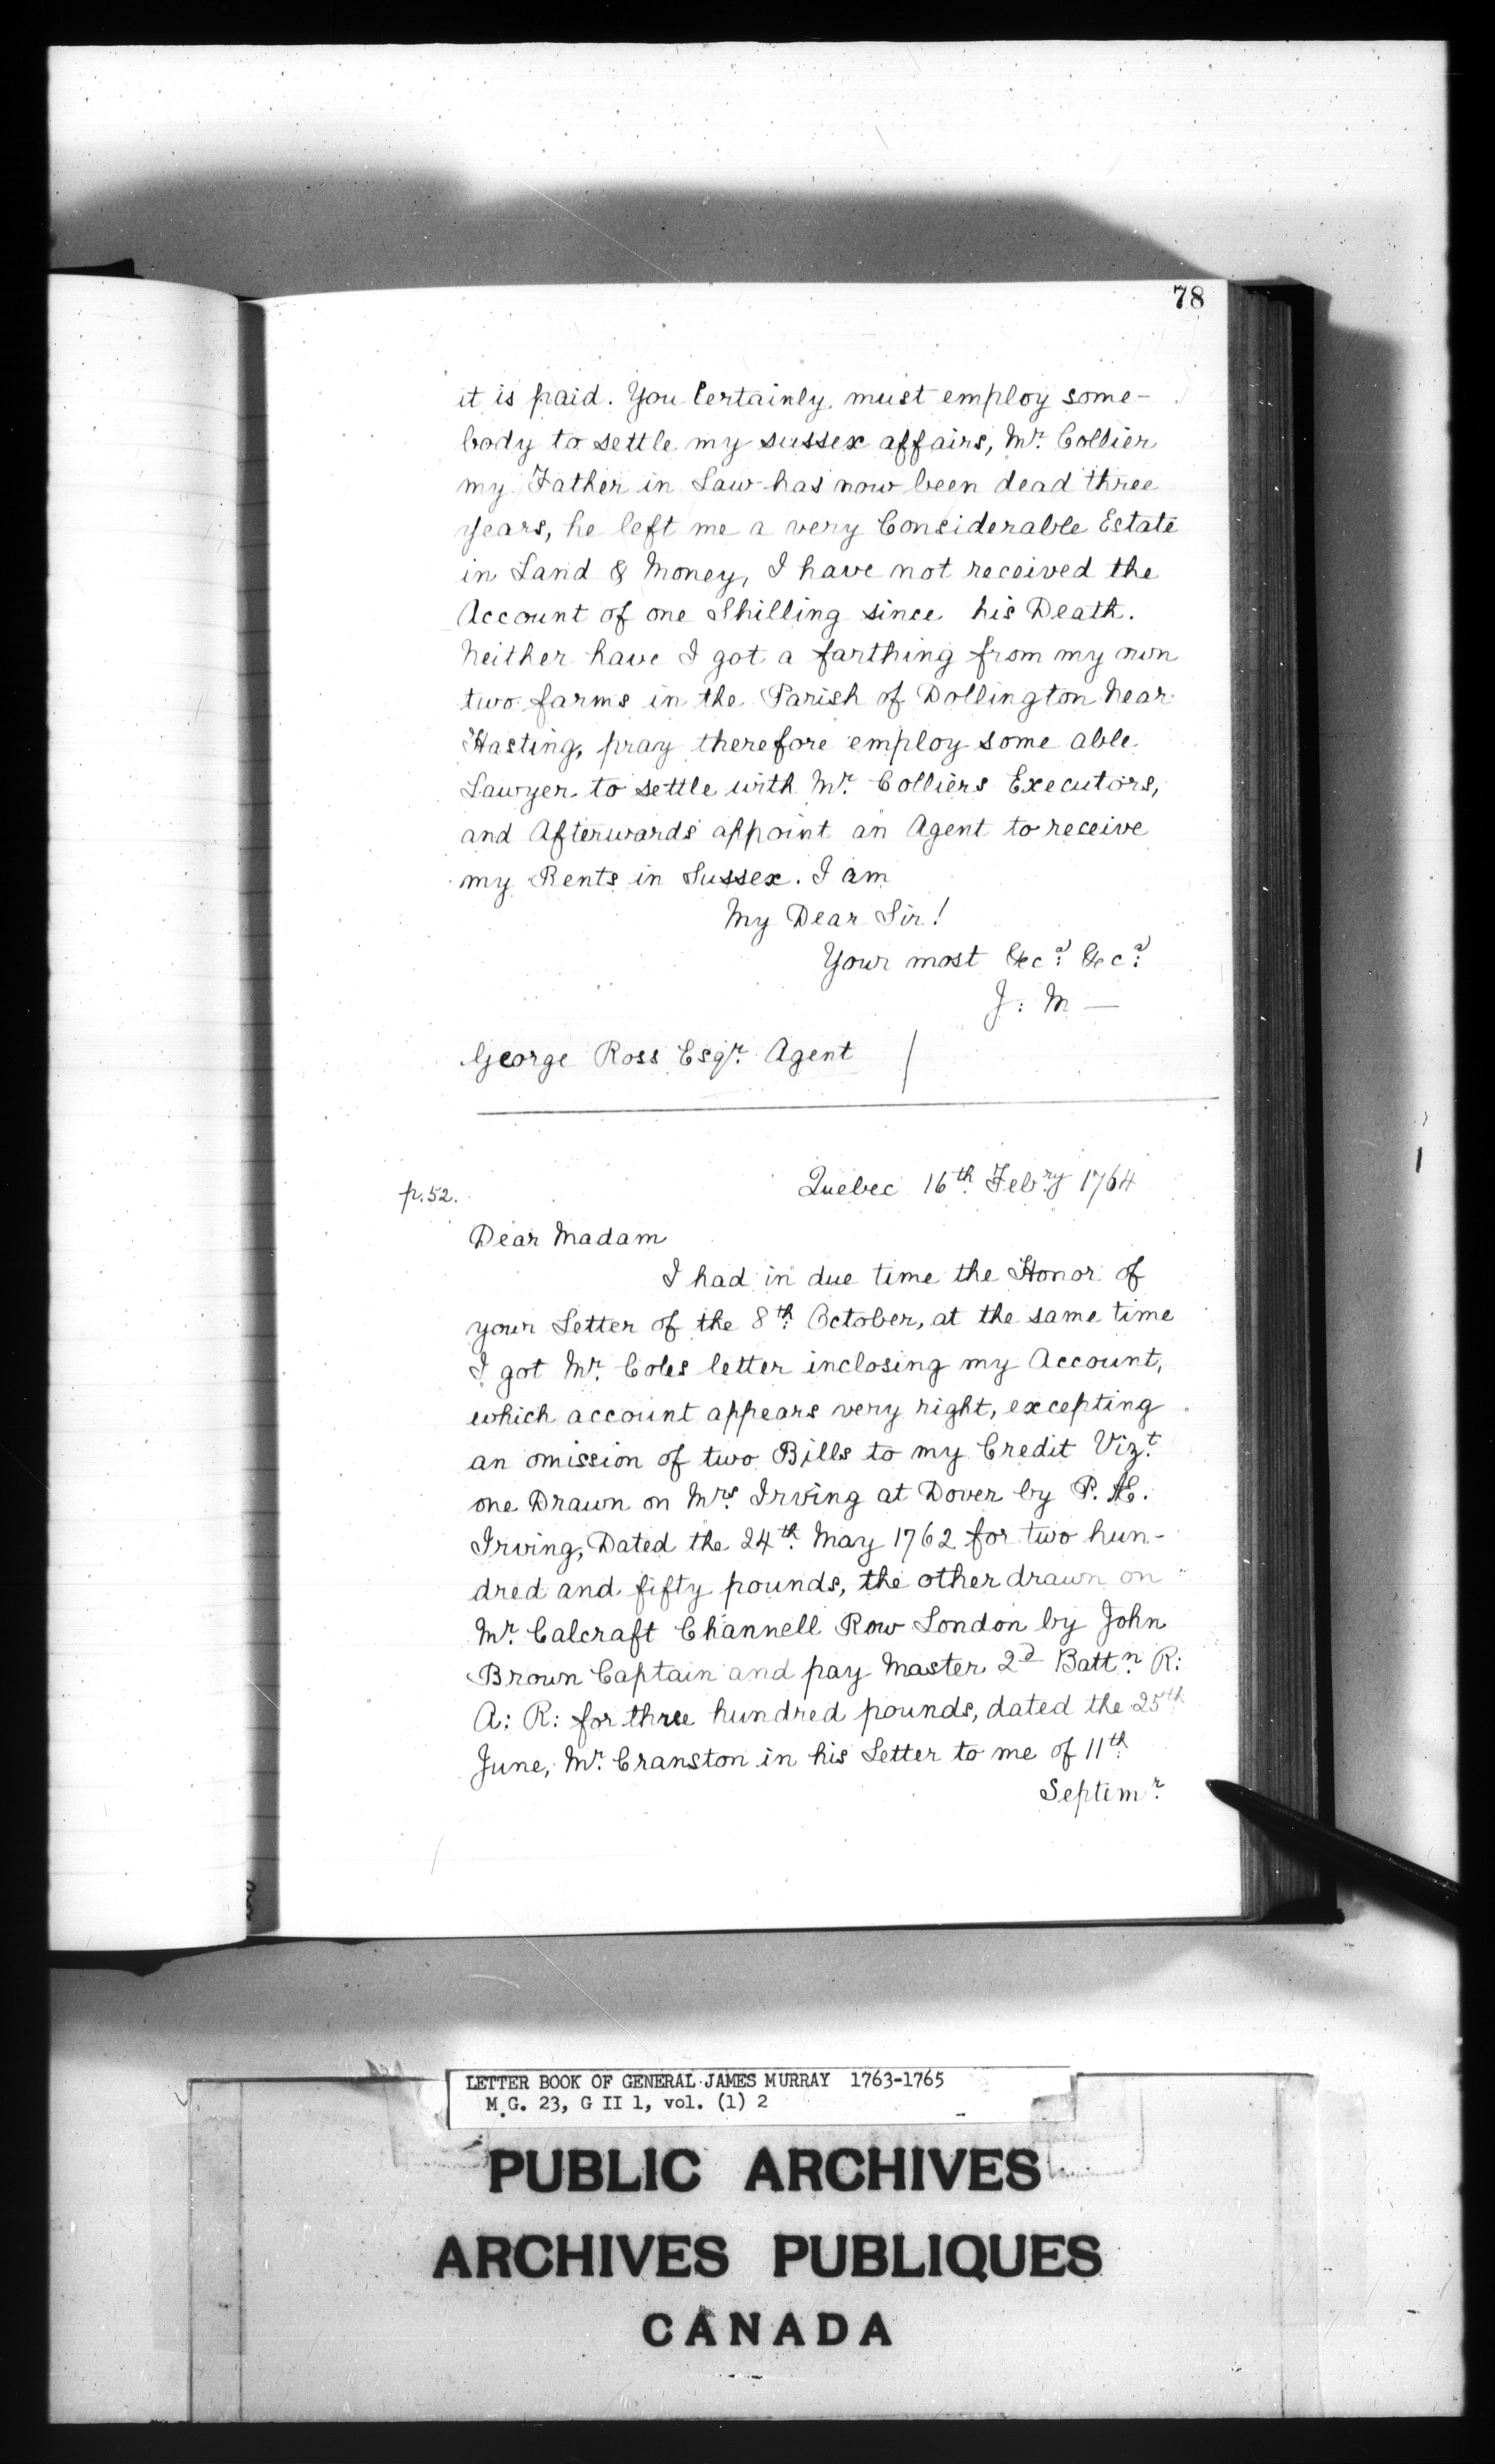 78
it is paid. You Certainly must employ some-
body to settle my sussex affairs, Mr. Collier
my Father in Law has now been dead three
years, he left me a very Considerable Estate
in Land & Money, I have not received the
Account of one Shilling since his Death.
Neither have I got a farthing from my own
two farms in the Parish of Dollington Near
Hasting, pray therefore employ some able
Lawyer to settle with Mr. Colliers Executors,
and Afterwards appoint an Agent to receive
my Rents in Sussex. I am
My Dear Sir!
Your most &ca. &ca.
J: M —
George Ross Esqr. Agent
p. 52.
Quebec 16th. Febry 1764
Dear Madam
I had in due time the Honor of
your Letter of the 8th. October, at the same time
I got Mr. Coles letter inclosing my Account,
which account appears very right, excepting
an omission of two Bills to my Credit Vizt.
one Drawn on Mrs. Irving at Dover by P. Æ.
Irving, Dated the 24th. May 1762 for two hun-
dred and fifty pounds, the other drawn on
Mr. Calcraft Channell Row London by John
Brown Captain and pay Master 2d Battn. R:
A: R: for three hundred pounds, dated the 25th
June, Mr. Cranston in his Letter to me of 11th.
Septemr.
LETTER BOOK OF GENERAL JAMES MURRAY 1763-1765
M.G. 23, G II 1, vol. (1) 2
PUBLIC ARCHIVES
ARCHIVES PUBLIQUES
CANADA